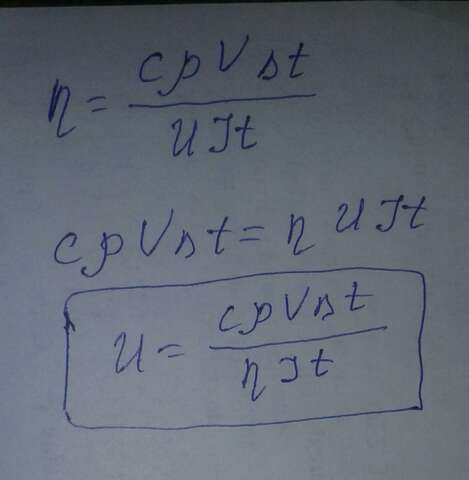 η = cρVΔt / UIt
cρVΔt = η UIt
U = cρVΔt / ηIt